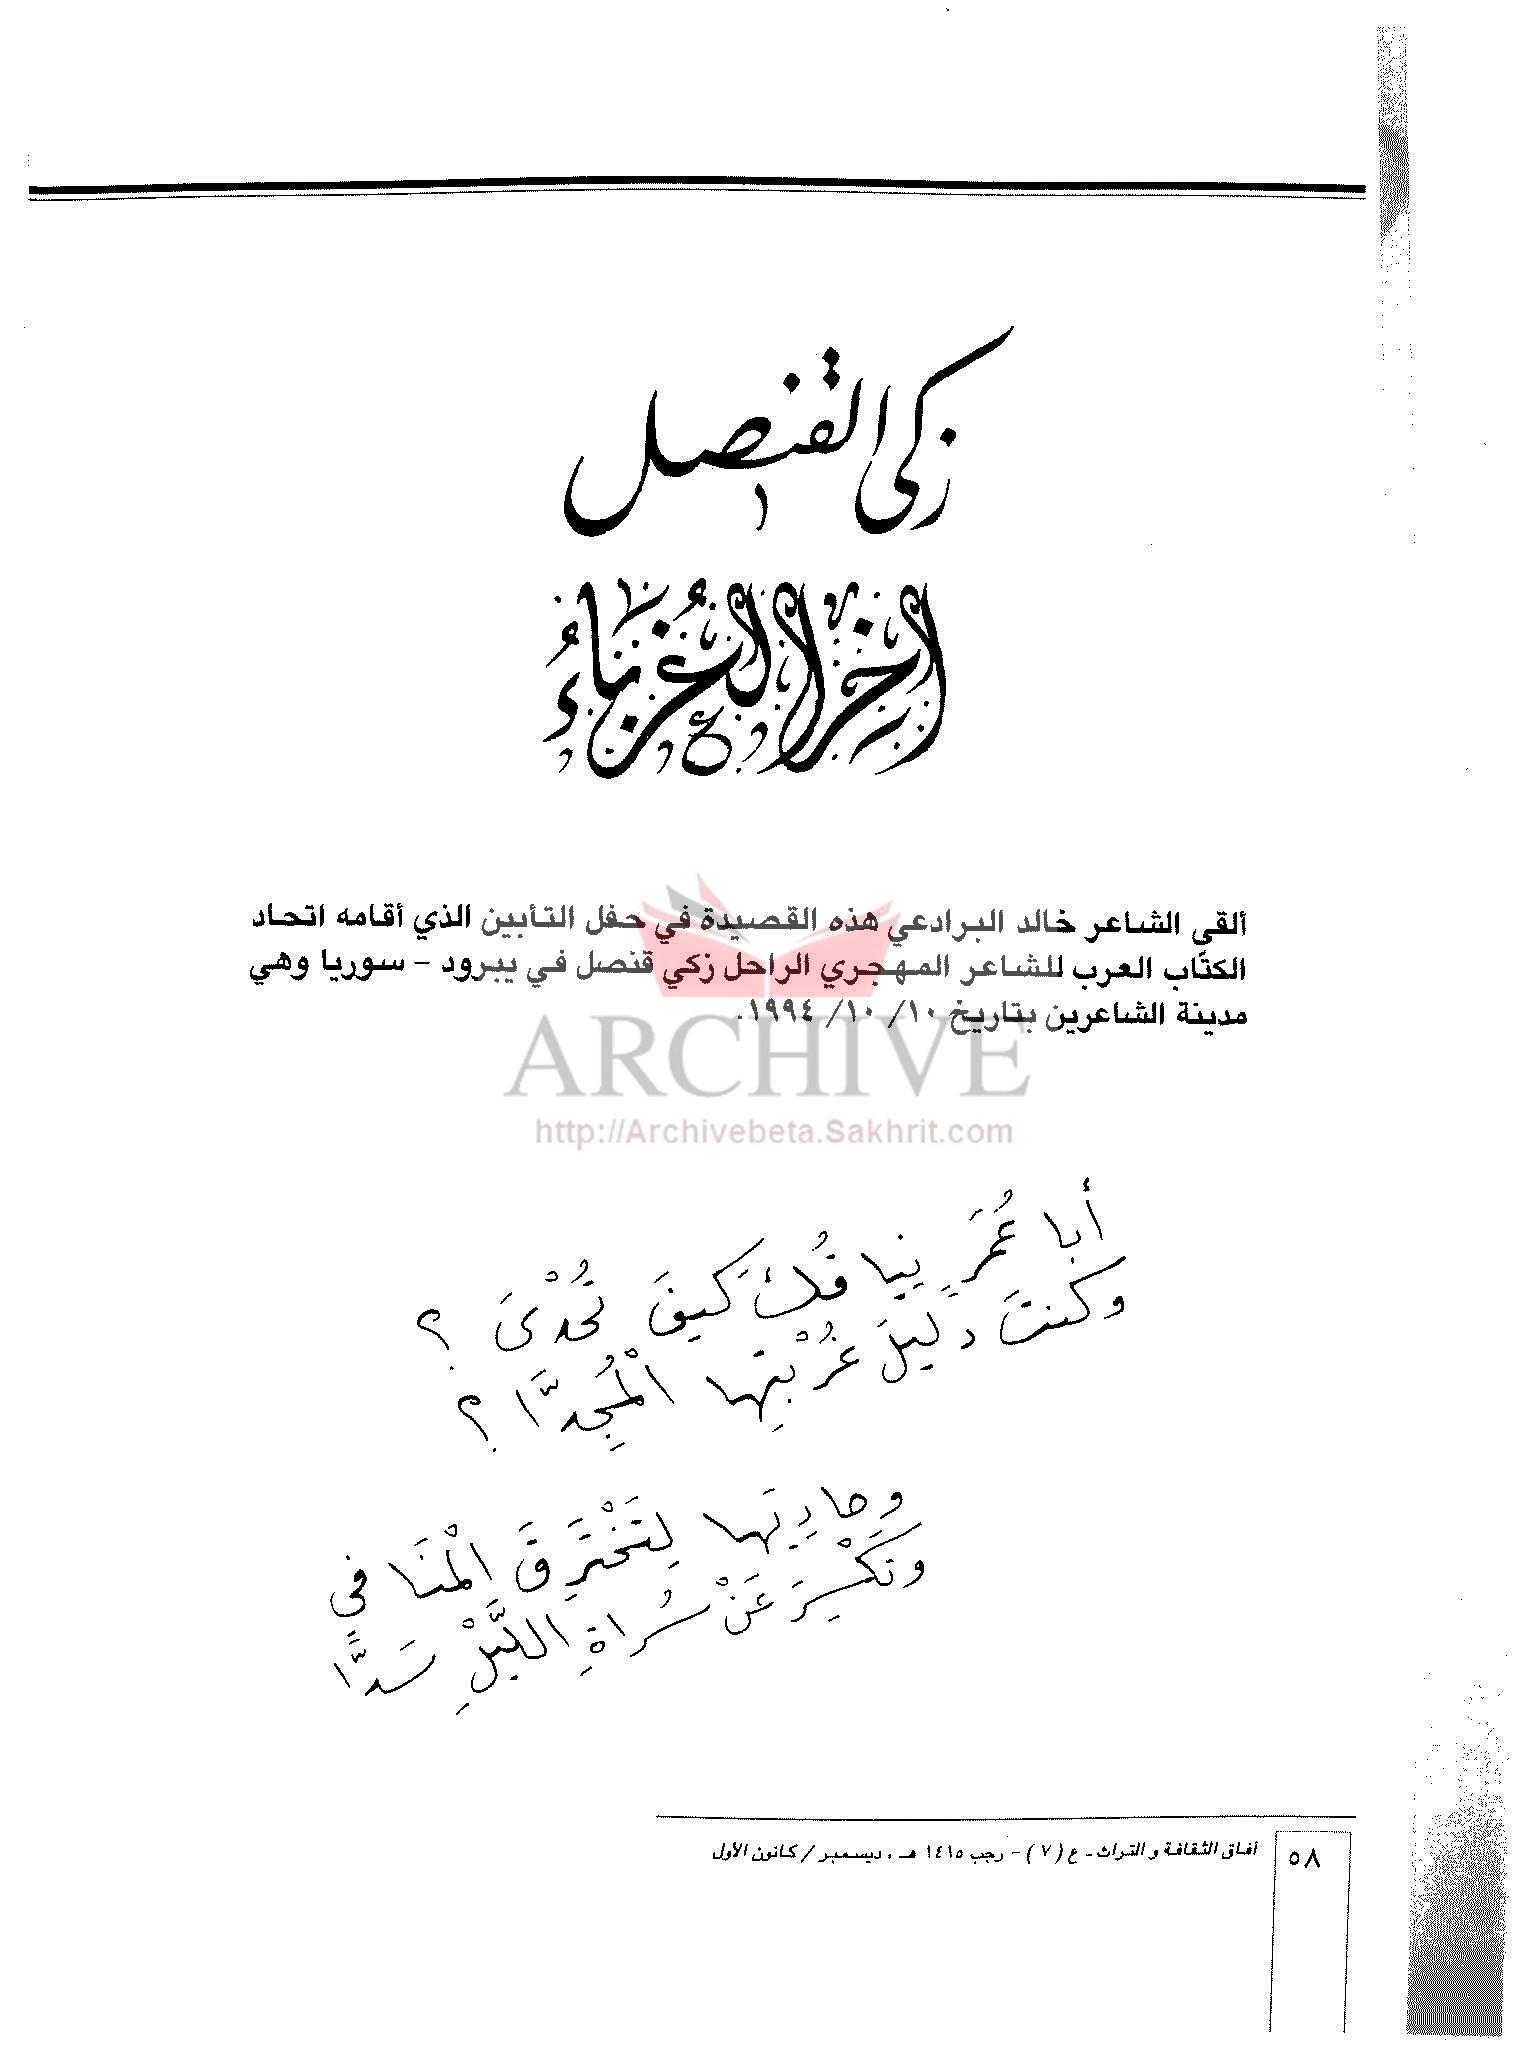 زكي القنصل
آخر الغرباء
ألقى الشاعر خالد البرادعي هذه القصيدة في حفل التأبين الذي أقامه اتحاد
الكتّاب العرب للشاعر المهجري الراحل زكي قنصل في يبرود – سوريا وهي
مدينة الشاعرين بتاريخ ١٠/ ١٠/ ١٩٩٤.
ARCHIVE
http://Archivebeta.Sakhrit.com
أبا عُمَرٍ نِيَاقُكَ كَيفَ تُحْدَى ؟
وكنتَ دليلَ غُرْبتِها الْمُجِدَّا ؟
وحادِيَها لِتَخْتَرِقَ الْمَنَافي
وتَكْسِرَ عَنْ سُراةِ اللَّيْلِ سَدَّا
آفاق الثقافة و التراث - ع (٧) - رجب ١٤١٥ هـ ، ديسمبر / كانون الأول
٥٨